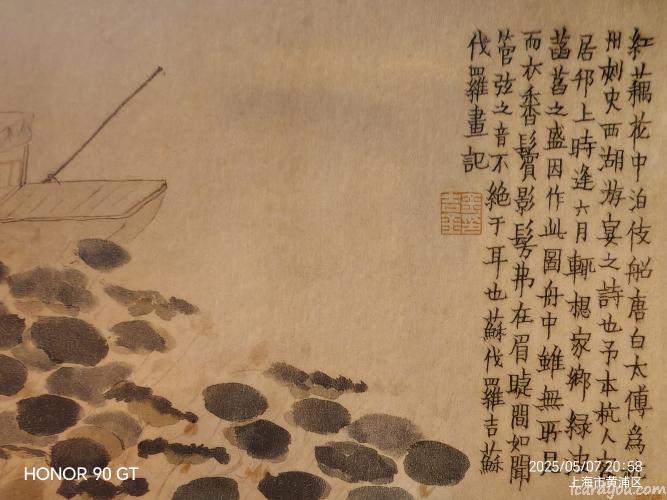 紅藕花中泊伎船唐白太傅為
州刺史西湖游宴之詩也予本杭人
居邗上時逢六月輒想家鄉緑
菡萏之盛因作此圖舟中雖無
而衣香鬢影髣弗在眉睫間如聞
管弦之音不絕于耳也蘇伐羅吉蘇
伐羅畫記
HONOR 90 GT
2025/05/07 20:58
上海市黄浦区
icarayou.com